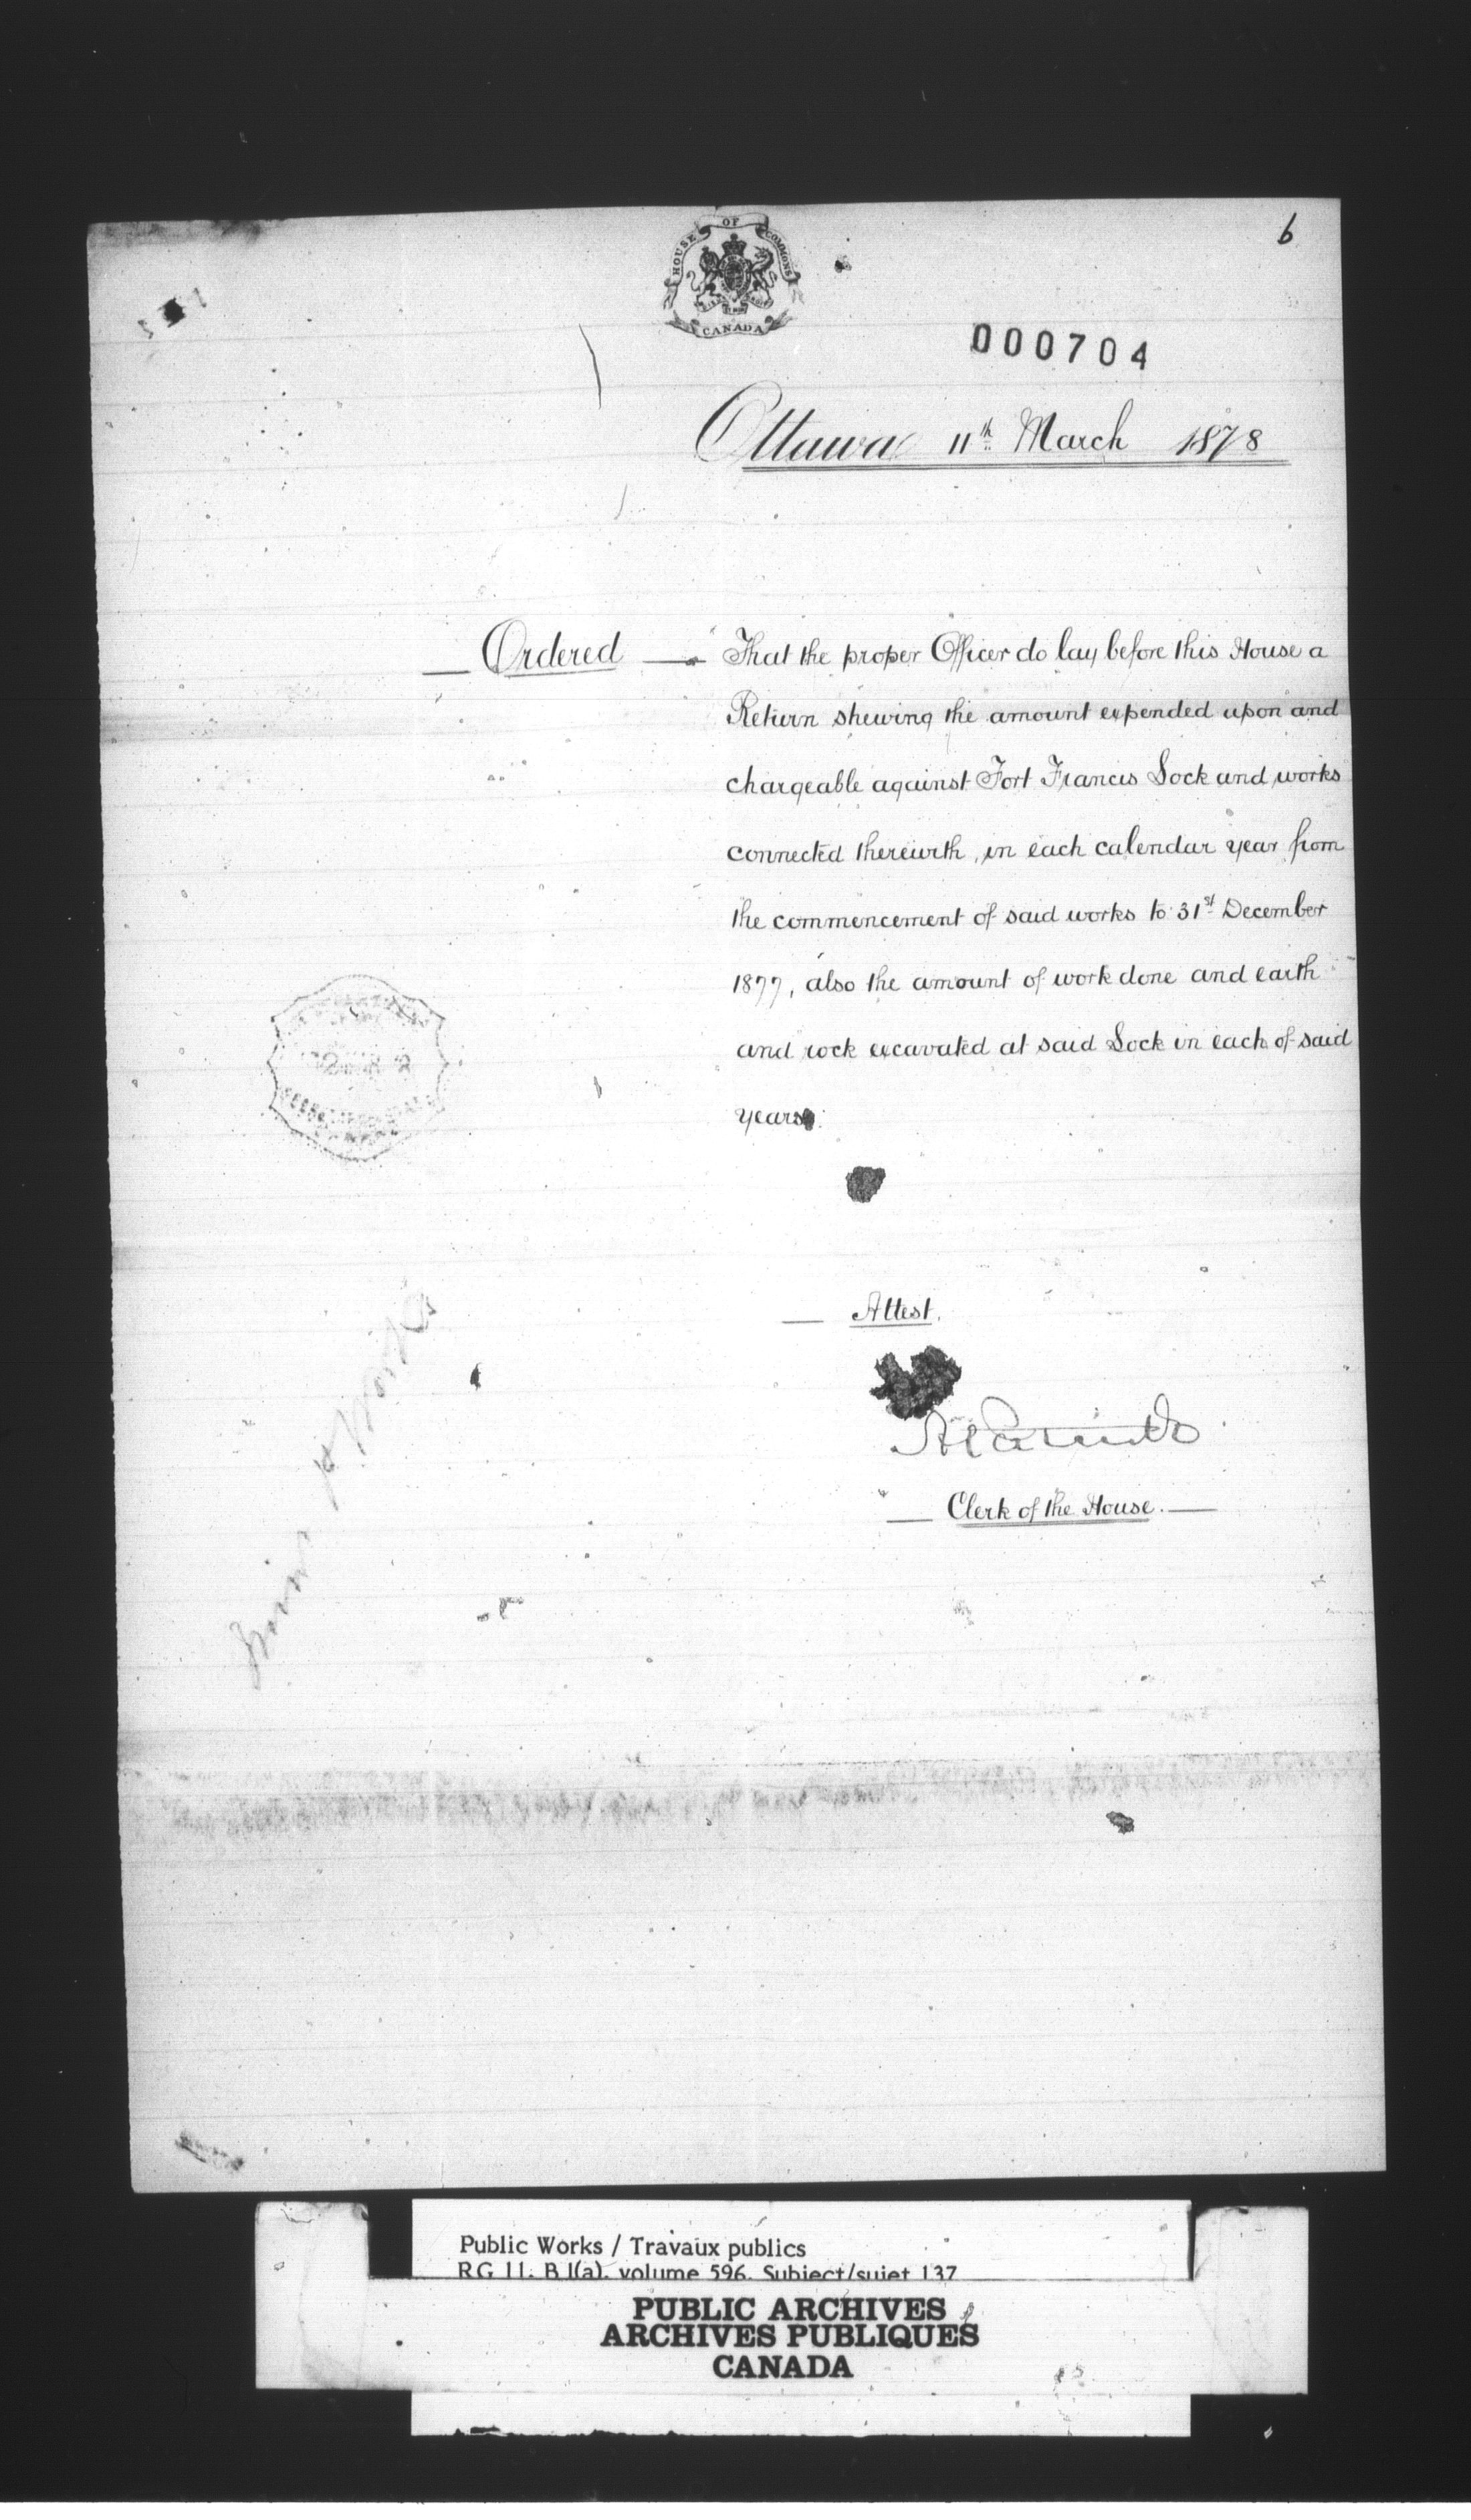 6
HOUSE OF COMMONS
CANADA
000704
Ottawa 11th March 1878
Ordered — That the proper Officer do lay before this House a
Return shewing the amount expended upon and
chargeable against Fort Francis Lock and works
connected therewith, in each calendar year from
the commencement of said works to 31st December
1877, also the amount of work done and earth
and rock excavated at said Lock in each of said
years.
Attest.
Clerk of the House.
Public Works / Travaux publics
RG 11, B 1(a), volume 596, Subject/sujet 137
PUBLIC ARCHIVES
ARCHIVES PUBLIQUES
CANADA